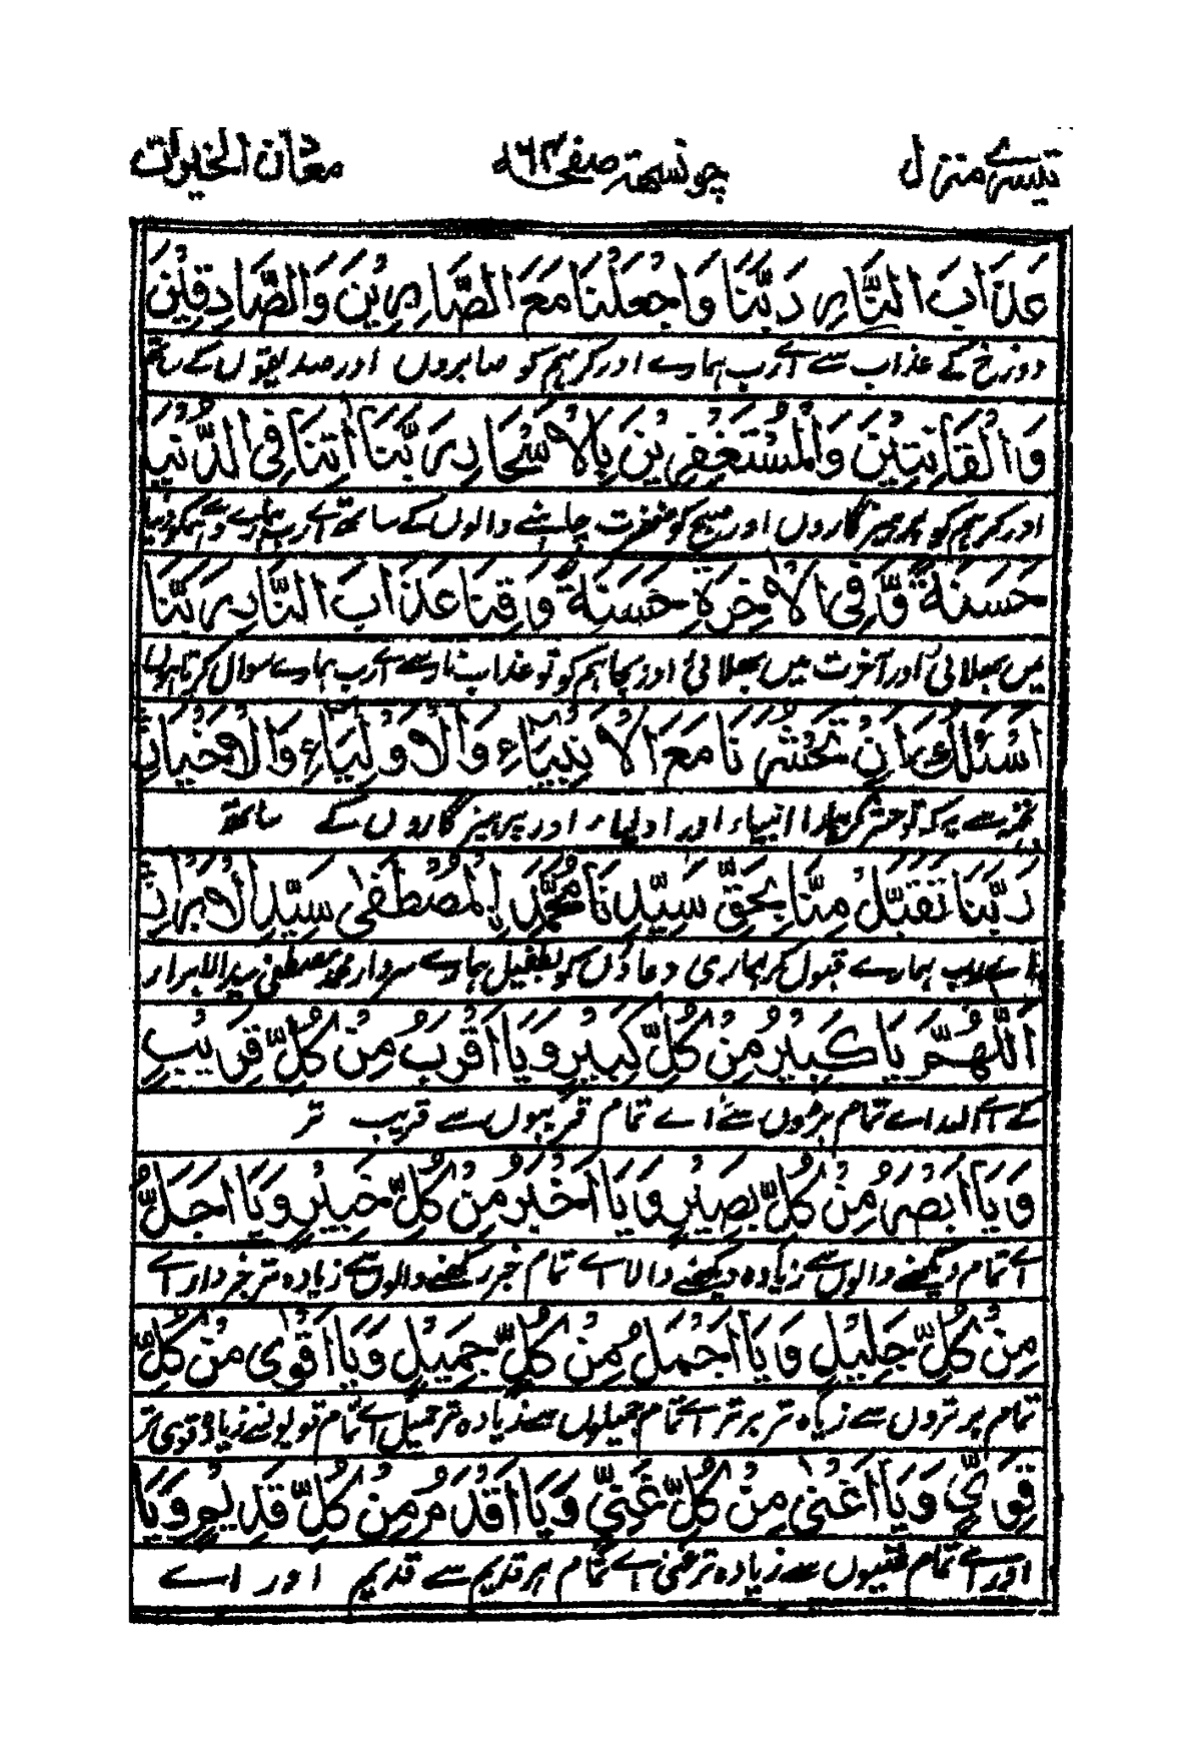 تیسرے منزل چونسٹھ صفحہ ۶۴ معدان الخیرات
عَذَابَ النَّارِ رَبَّنَا وَاجْعَلْنَا مَعَ الصَّابِرِيْنَ وَالصَّادِقِيْنَ
دوزخ کے عذاب سے اے رب ہمارے اور کر ہم کو صابروں اور صدیقوں کے ساتھ
وَالْقَانِتِيْنَ وَالْمُسْتَغْفِرِيْنَ بِالْاَسْحَارِ رَبَّنَا اٰتِنَا فِی الدُّنْيَا
اور کر ہم کو پرہیزگاروں اور صبح کو مغفرت چاہنے والوں کے ساتھ اے رب ہمارے دے ہمکو دنیا
حَسَنَةً وَّفِی الْاٰخِرَةِ حَسَنَةً وَقِنَا عَذَابَ النَّارِ رَبَّنَا
میں بھلائی اور آخرت میں بھلائی اور بچا ہم کو تو عذاب نار سے اے رب ہمارے سوال کرتا ہوں
اَسْئَلُكَ اَنْ تَحْشُرَنَا مَعَ الْاَنْبِيَاءِ وَالْاَوْلِيَاءِ وَالْاَخْيَارِ
سے یہ کہ تو حشر کر ہمارا انبیاء اور اولیاء اور پرہیزگاروں کے ساتھ
رَبَّنَا تَقَبَّلْ مِنَّا بِحَقِّ سَيِّدِنَا مُحَمَّدِ الْمُصْطَفٰى سَيِّدِ الْاَبْرَارِ
اے رب ہمارے قبول کر ہماری دعاؤں کو بطفیل ہمارے سردار محمد مصطفی سید الابرار
اَللّٰهُمَّ يَا كَبِيْرُ مِنْ كُلِّ كَبِيْرٍ وَيَا اَقْرَبُ مِنْ كُلِّ قَرِيْبٍ
کے اے اللہ اے تمام بڑوں سے اے تمام قریبوں سے قریب تر
وَيَا اَبْصَرُ مِنْ كُلِّ بَصِيْرٍ وَيَا اَخْبَرُ مِنْ كُلِّ خَبِيْرٍ وَيَا اَجَلُّ
اے تمام دیکھنے والوں سے زیادہ دیکھنے والا اے تمام خبر رکھنے والوں سے زیادہ تر خبردار اے
مِنْ كُلِّ جَلِيْلٍ وَيَا اَجْمَلُ مِنْ كُلِّ جَمِيْلٍ وَيَا اَقْوٰى مِنْ كُلِّ
تمام برتروں سے زیادہ تر برتر اے تمام جمیلوں سے زیادہ تر جمیل اے تمام قویوں سے زیادہ قوی تر
قَوِيٍّ وَيَا اَغْنٰى مِنْ كُلِّ غَنِيٍّ وَيَا اَقْدَمُ مِنْ كُلِّ قَدِيْمٍ وَيَا
اور اے تمام غنیوں سے زیادہ تر غنی اے تمام ہر قدیم سے قدیم اور اے